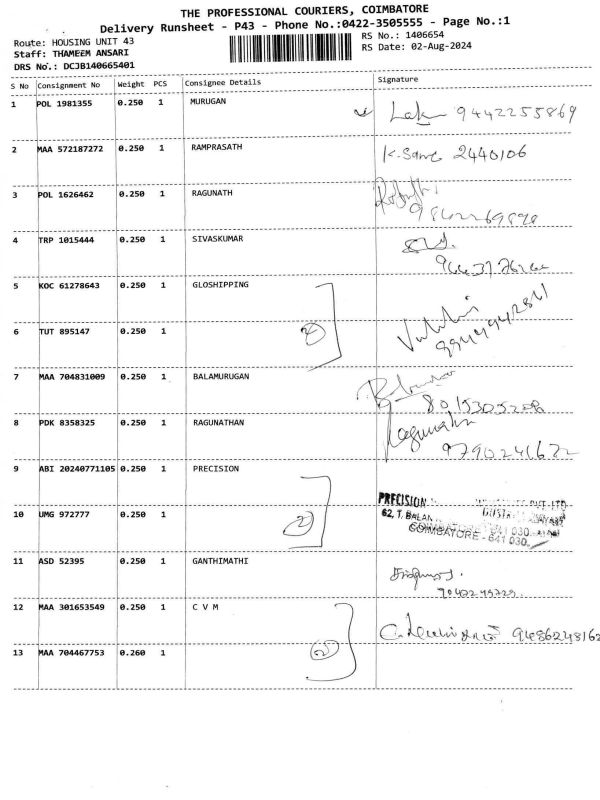 THE PROFESSIONAL COURIERS, COIMBATORE
Delivery Runsheet - P43 - Phone No.:0422-3505555 - Page No.:1
Route: HOUSING UNIT 43
RS No.: 1406654
Staff: THAMEEM ANSARI
RS Date: 02-Aug-2024
DRS No.: DCJB140665401
S No Consignment No Weight PCS Consignee Details Signature
1 POL 1981355 0.250 1 MURUGAN
9442255869
2 MAA 572187272 0.250 1 RAMPRASATH
2440106
3 POL 1626462 0.250 1 RAGUNATH
4 TRP 1015444 0.250 1 SIVASKUMAR
5 KOC 61278643 0.250 1 GLOSHIPPING
6 TUT 895147 0.250 1
7 MAA 704831009 0.250 1 BALAMURUGAN
8 PDK 8358325 0.250 1 RAGUNATHAN
Ragunathan
9 ABI 20240771105 0.250 1 PRECISION
PRECISION PVT LTD
62, T. BALAN
10 UMG 972777 0.250 1
COIMBATORE - 641 030.
11 ASD 52395 0.250 1 GANTHIMATHI
12 MAA 301653549 0.250 1 C V M
9486248162
13 MAA 704467753 0.260 1